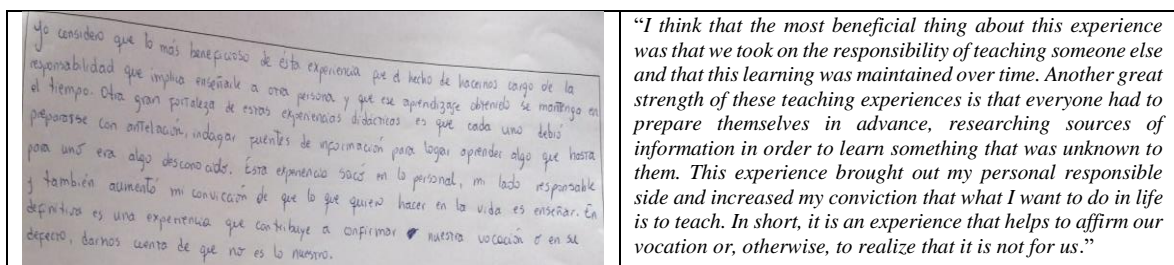 Yo considero que lo más beneficioso de ésta experiencia fue el hecho de hacernos cargo de la
responsabilidad que implica enseñarle a otra persona y que ese aprendizaje obtenido se mantenga en
el tiempo. Otra gran fortaleza de estas experiencias didácticas es que cada uno debió
prepararse con antelación, indagar fuentes de información para logar aprender algo que hasta
para uno era algo desconocido. Esta experiencia sacó en lo personal, mi lado responsable
y también aumentó mi convicción de que lo que quiero hacer en la vida es enseñar. En
definitiva es una experiencia que contribuye a confirmar nuestra vocación o en su
defecto, darnos cuenta de que no es lo nuestro.
“I think that the most beneficial thing about this experience
was that we took on the responsibility of teaching someone else
and that this learning was maintained over time. Another great
strength of these teaching experiences is that everyone had to
prepare themselves in advance, researching sources of
information in order to learn something that was unknown to
them. This experience brought out my personal responsible
side and increased my conviction that what I want to do in life
is to teach. In short, it is an experience that helps to affirm our
vocation or, otherwise, to realize that it is not for us.”